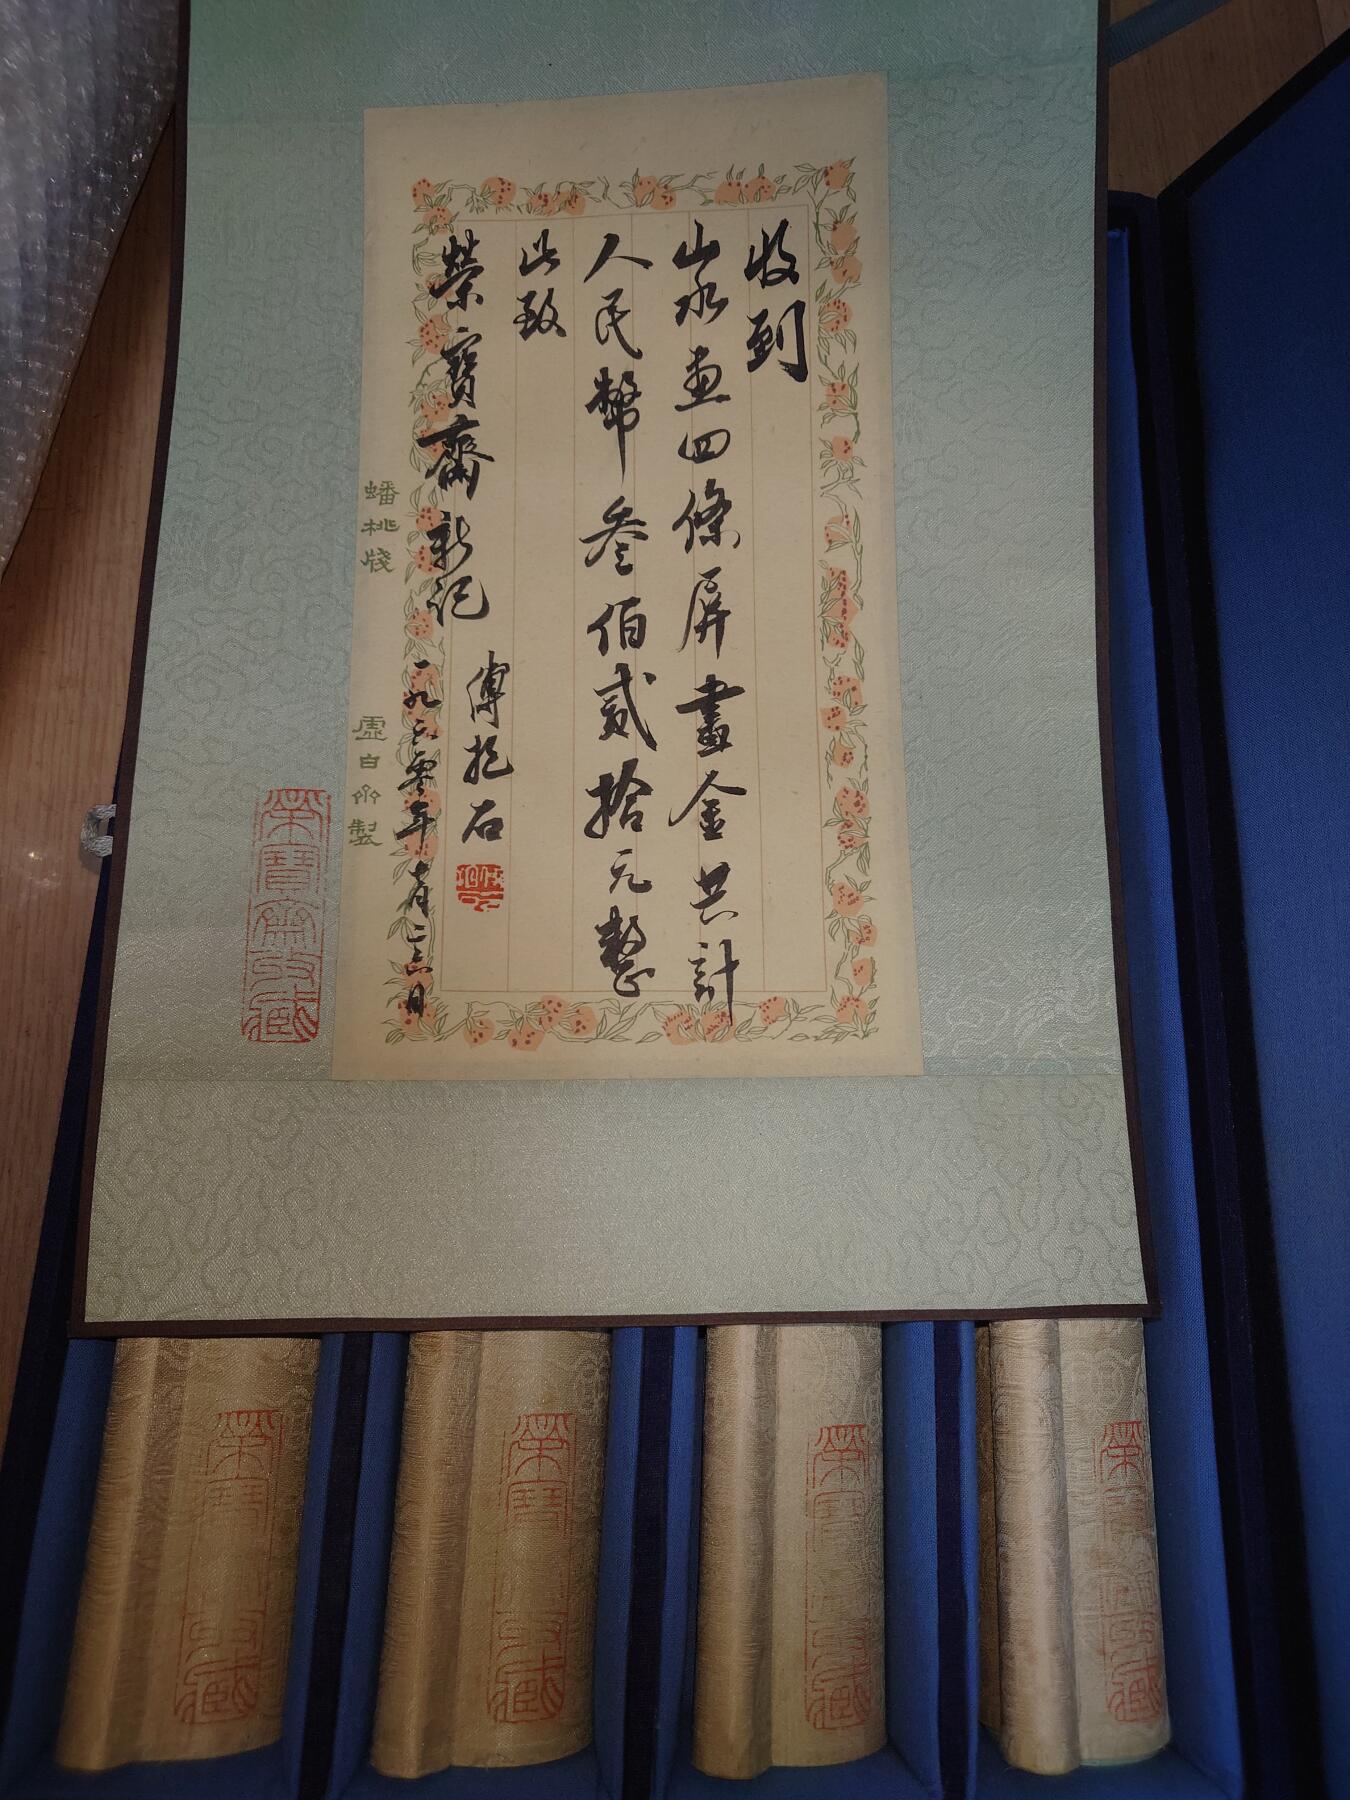 收到
山水画四條屏畫金共計
人民幣叁佰貳拾元整
此致
榮寶齋新記
傅抱石
一九六零年十月二六日
蟠桃牋
虛白齋製
榮寶齋收藏
榮寶齋收藏
榮寶齋收藏
榮寶齋收藏
榮寶齋收藏